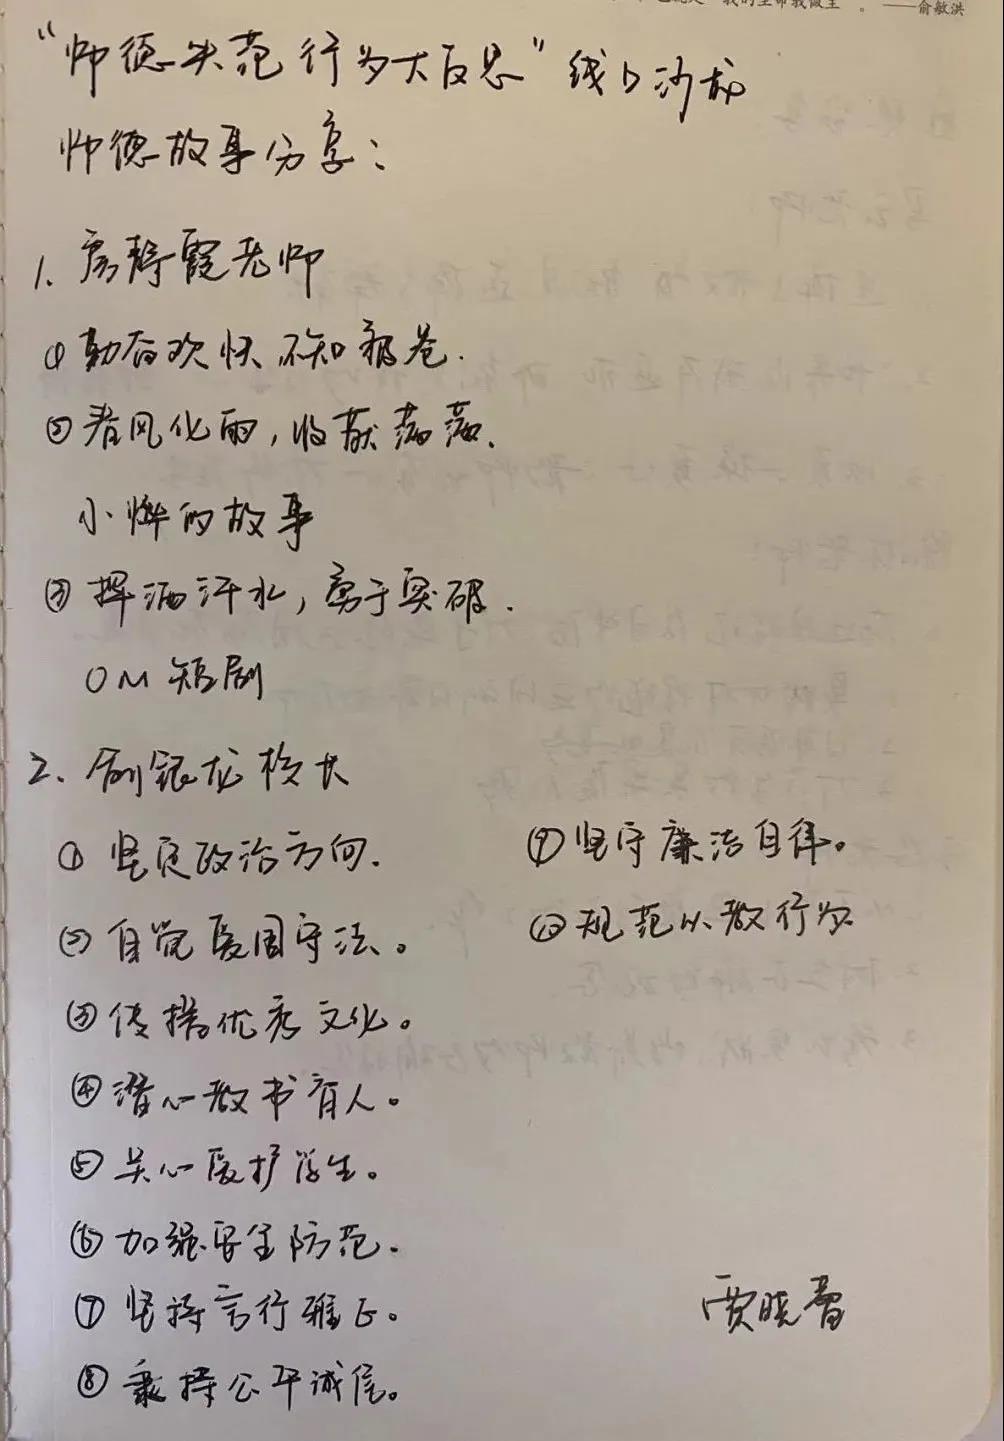 我的生命我做主"。——俞敏洪
"师德失范行为大反思"线上沙龙
师德故事分享:
1. 房静霞老师
① 勤奋欢快 不知疲惫.
② 春风化雨,收获满满.
小烨的故事
③ 挥洒汗水,勇于突破.
OM 短剧
2. 银龙校长
① 坚定政治方向.
② 自觉爱国守法。
③ 传播优秀文化。
④ 潜心教书育人。
⑤ 关心爱护学生。
⑥ 加强安全防范.
⑦ 坚持言行雅正。
⑧ 秉持公平诚信。
⑨ 坚守廉洁自律。
⑩ 规范从教行为
贾晓蕾